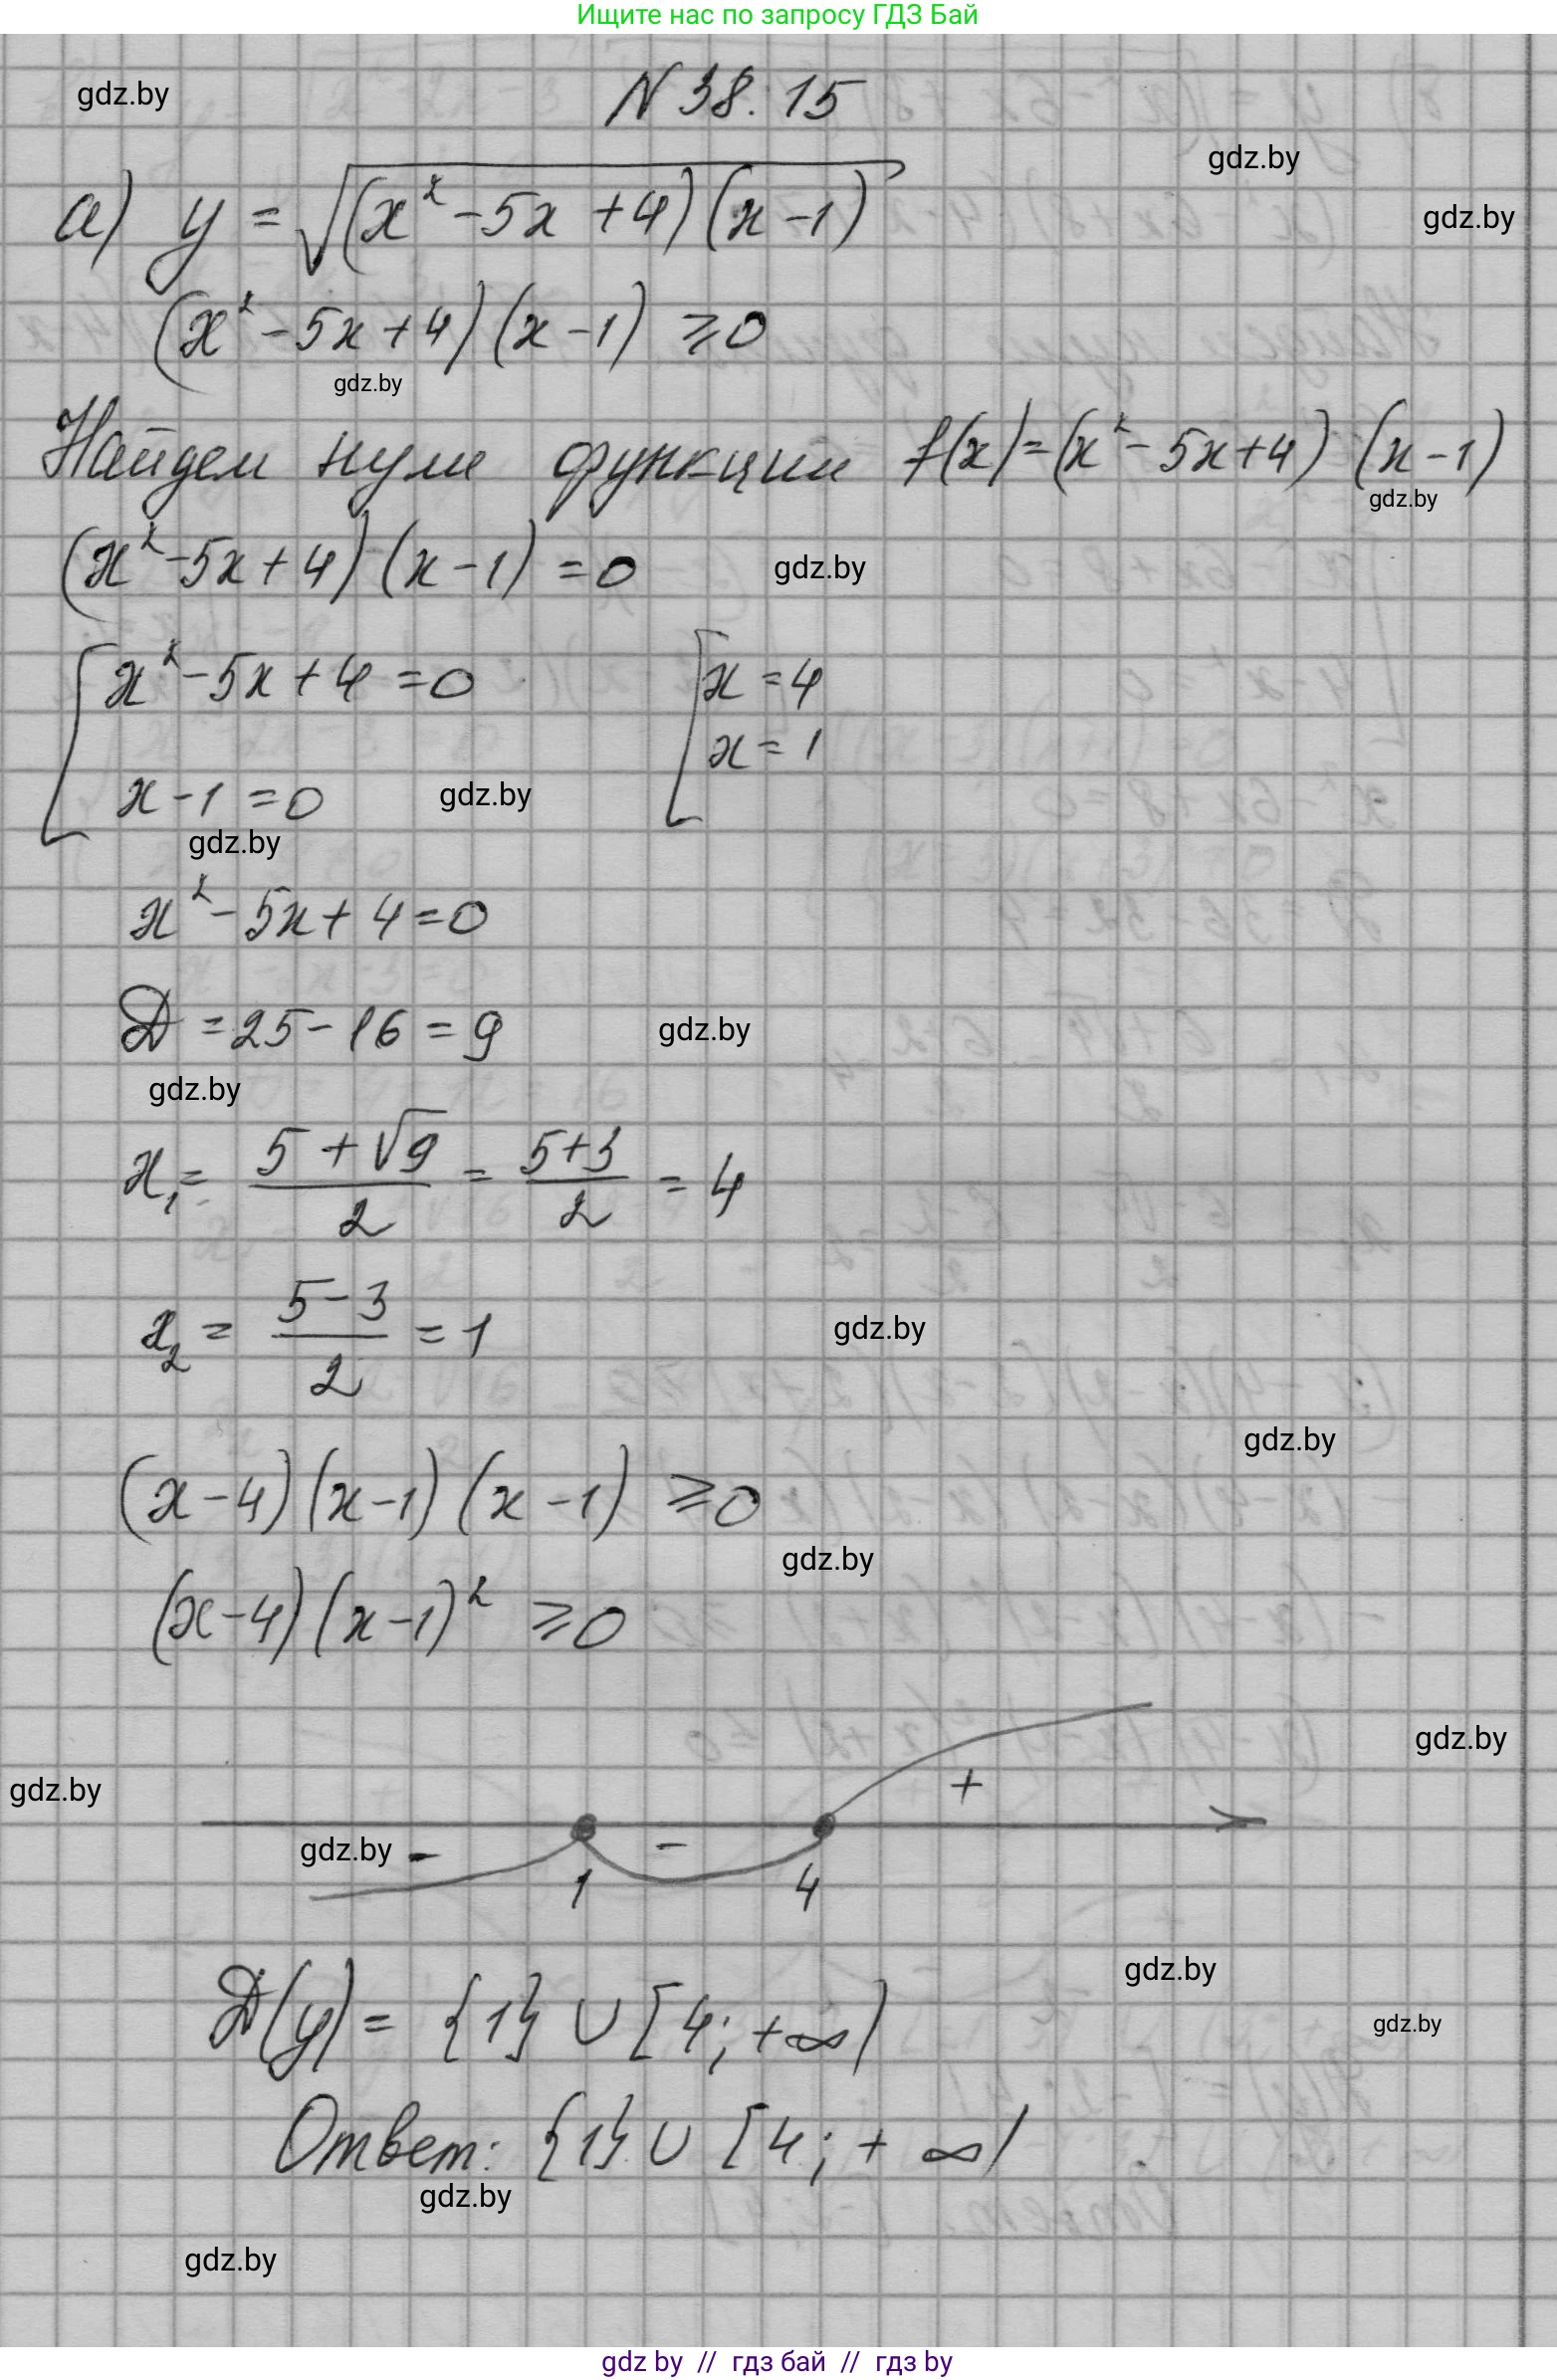 Ищите нас по запросу ГДЗ Бай
gdz.by
N 38.15
gdz.by
а) y = √((x² - 5x + 4)(x - 1))
gdz.by
(x² - 5x + 4)(x - 1) ≥ 0
gdz.by
Найдем нули функции f(x) = (x² - 5x + 4)(x - 1)
gdz.by
(x² - 5x + 4)(x - 1) = 0
gdz.by
[ x² - 5x + 4 = 0 [ x = 4
x = 1
x - 1 = 0
gdz.by
gdz.by
x² - 5x + 4 = 0
D = 25 - 16 = 9
gdz.by
gdz.by
x₁ = (5 + √9)/2 = (5+3)/2 = 4
x₂ = (5 - 3)/2 = 1
gdz.by
gdz.by
(x - 4)(x - 1)(x - 1) ≥ 0
gdz.by
(x - 4)(x - 1)² ≥ 0
gdz.by
+
gdz.by
gdz.by - -
1 4
gdz.by
D(y) = {1} ∪ [4; +∞)
gdz.by
Ответ: {1} ∪ [4; +∞)
gdz.by
gdz.by
gdz by // гдз бай // гдз by